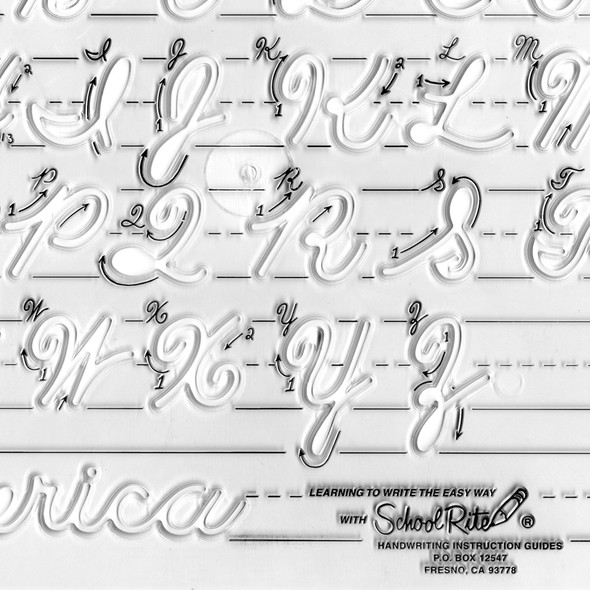 I J K L M
P Q R S T
W X Y Z
erica
LEARNING TO WRITE THE EASY WAY
WITH SchoolRite ®
HANDWRITING INSTRUCTION GUIDES
P.O. BOX 12547
FRESNO, CA 93778